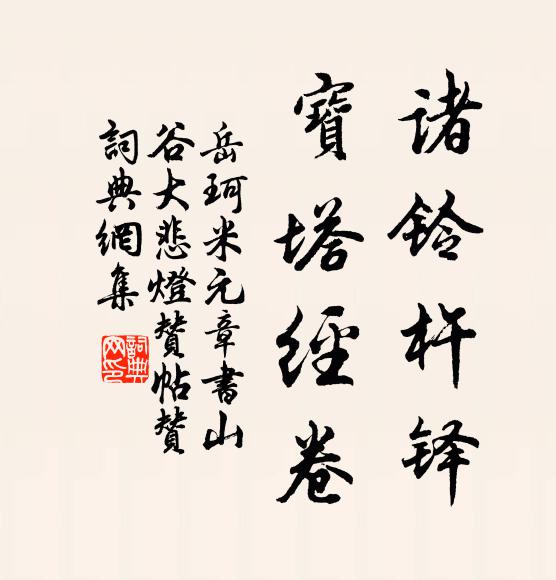 诸铃杵铎
寶塔經卷
岳珂米元章書山
谷大悲燈贊帖贊
詞典網集
詞典網印